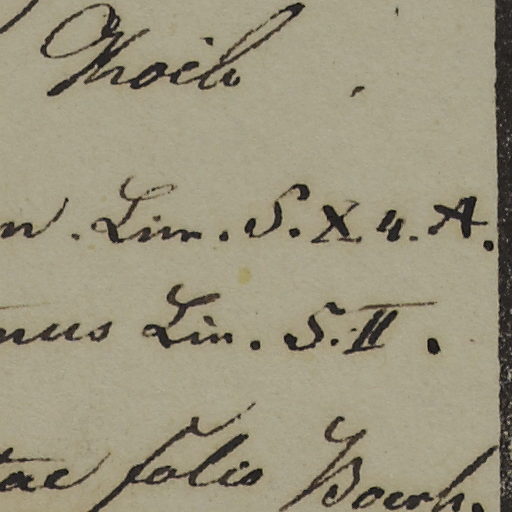 n. Linn. S. X. 4. A.
nus Lin. S. II.
tae folio Boerh.